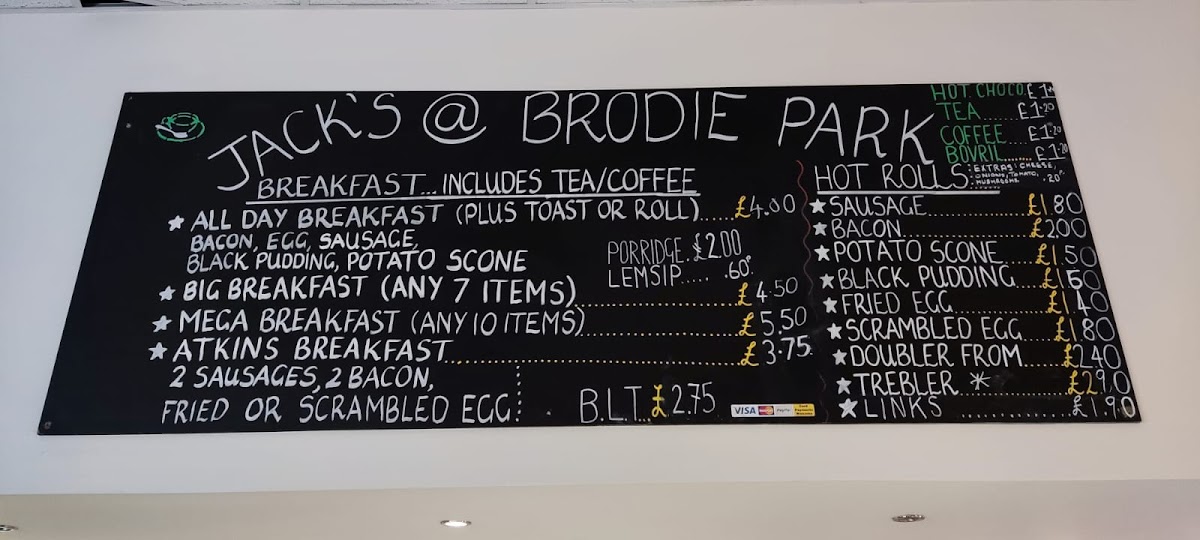 JACK'S @ BRODIE PARK
HOT CHOCO. £1
TEA......£1.20
COFFEE....£1.20
BOVRIL........£1.20
BREAKFAST... INCLUDES TEA/COFFEE
★ ALL DAY BREAKFAST (PLUS TOAST OR ROLL).....£4.00
BACON, EGG, SAUSAGE,
BLACK PUDDING, POTATO SCONE
PORRIDGE.£2.00
LEMSIP.....60P
★ BIG BREAKFAST (ANY 7 ITEMS)........£4.50
★ MEGA BREAKFAST (ANY 10 ITEMS)........£5.50
★ ATKINS BREAKFAST........£3.75
2 SAUSAGES, 2 BACON,
FRIED OR SCRAMBLED EGG.
B.L.T...£2.75
VISA MasterCard PayPal
HOT ROLLS
EXTRAS: CHEESE,
ONIONS, TOMATO,
MUSHROOMS .20P
★ SAUSAGE........£1.80
★ BACON........£2.00
★ POTATO SCONE....£1.50
★ BLACK PUDDING....£1.60
★ FRIED EGG........£1.40
★ SCRAMBLED EGG....£1.80
★ DOUBLER FROM....£2.40
★ TREBLER *........£2.90
★ LINKS........£1.90